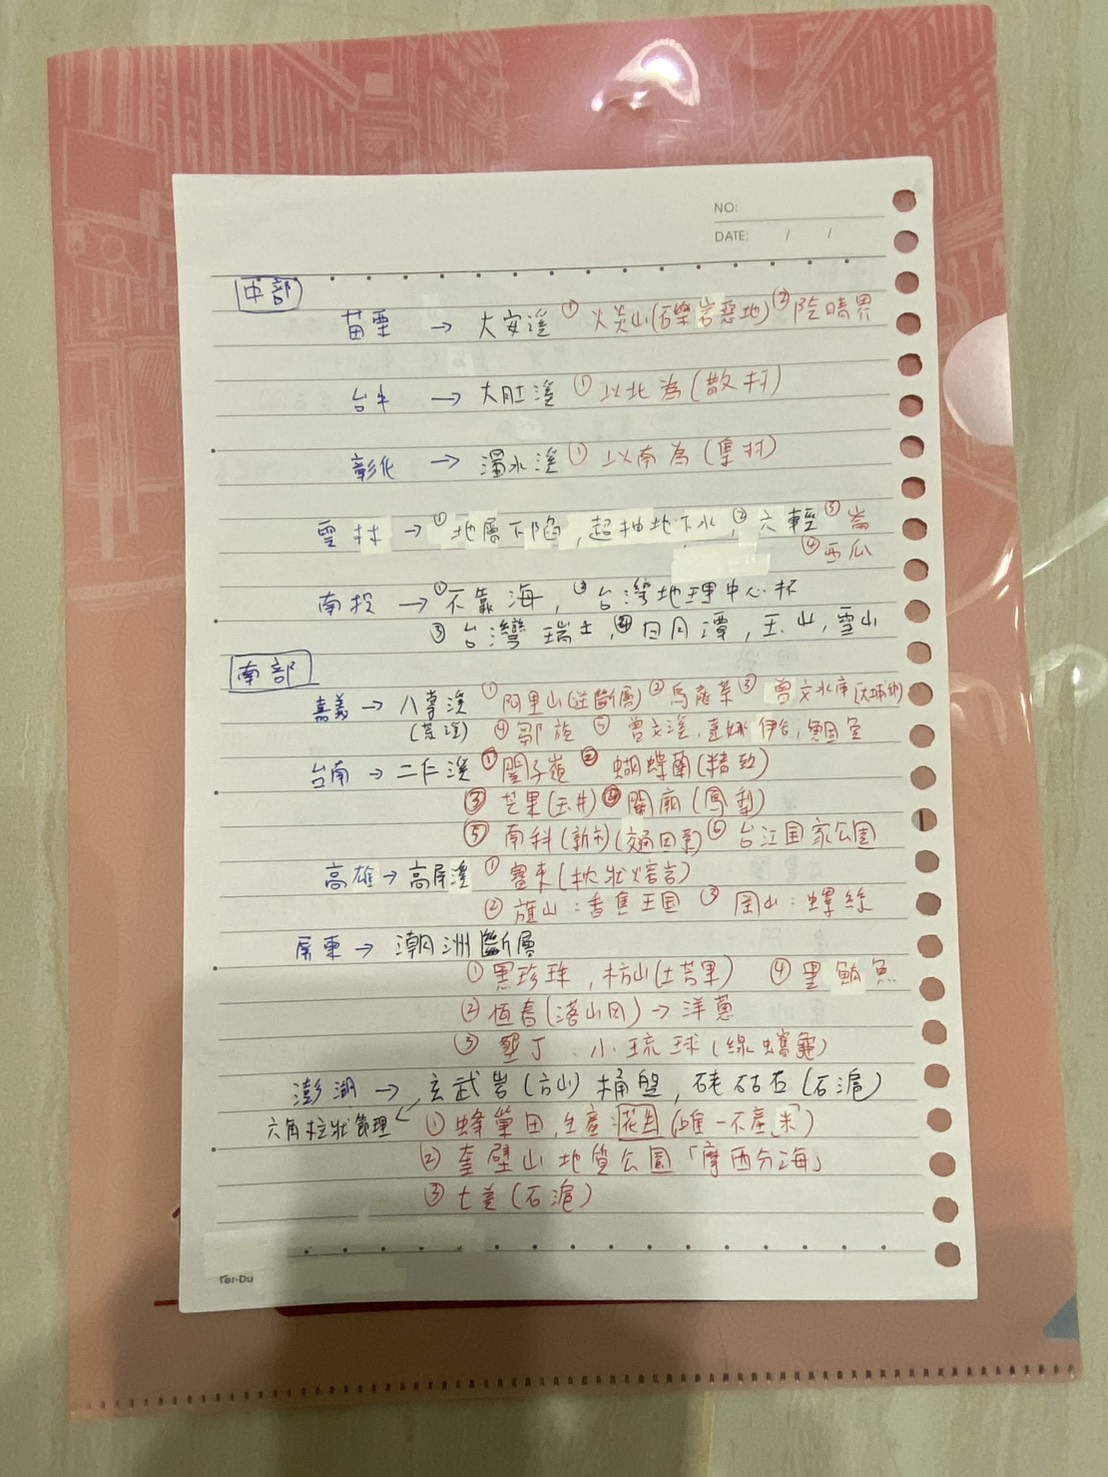 NO:
DATE: / /
中部
苗栗 → 大安溪 ① 火炎山(礫岩惡地) ② 陰晴界
台中 → 大肚溪 ① 以北為(散村)
彰化 → 濁水溪 ① 以南為(集村)
雲林 → ① 地層下陷,超抽地下水, ② 六輕 ③
④ 西瓜
南投 → ① 不靠海, ② 台灣地理中心杯
③ 台灣瑞士, ④ 日月潭, 玉山, 雪山
南部
嘉義 → 八掌溪 ① 阿里山(逆斷層) ② ③ 曾文水庫
④ 鄒族 ⑤ 曾文溪, 達娜伊谷, 鯝魚
台南 → 二仁溪 ① 關子嶺 ② 蝴蝶蘭(精致)
③ 芒果(玉井) ④ 關廟(鳳梨)
⑤ 南科(新市) ⑥ 台江国家公園
高雄 → 高屏溪 ① 寶來(枕狀熔岩)
② 旗山:香蕉王国 ③ 岡山:螺絲
屏東 → 潮洲斷層
① 黑珍珠, 枋山(土芒果) ④ 黑鮪魚
② 恆春(落山风) → 洋蔥
③ 墾丁、小琉球(綠蠵龜)
澎湖 → 玄武岩(方山) 桶盤, 硓𥑮石(石滬)
六角柱狀節理 ① 蜂巢田,生產花生(唯一不產「米」)
② 奎壁山地質公園「摩西分海」
③ 七美(石滬)
Ter-Du